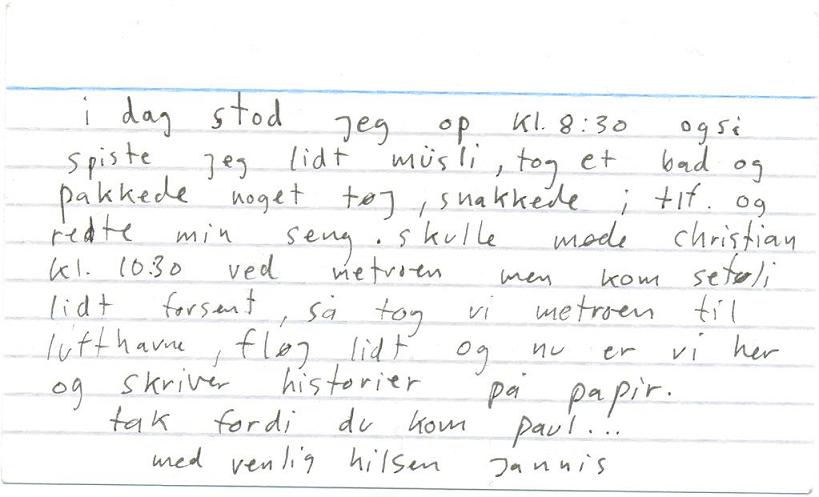 i dag stod jeg op kl. 8:30 også
spiste jeg lidt müsli, tog et bad og
pakkede noget tøj, snakkede i tlf. og
redte min seng. skulle møde christian
kl. 10.30 ved metroen men kom setøli
lidt forsent, så tog vi metroen til
lufthavne, fløj lidt og nu er vi her
og skriver historier på papir.
tak fordi du kom paul...
med venlig hilsen Jannis